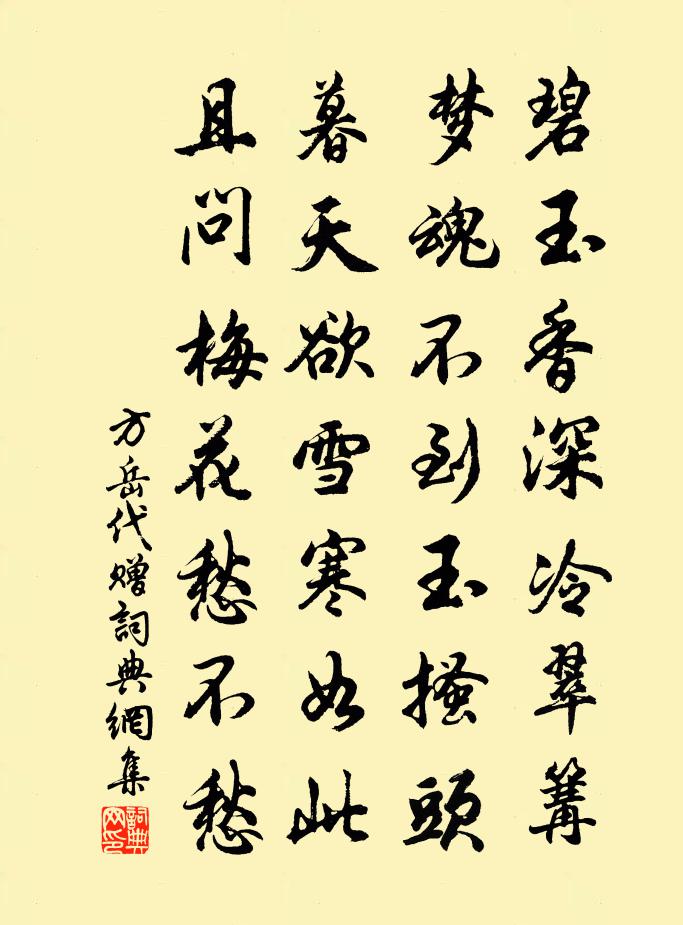 碧玉香深冷翠篝
梦魂不到玉搔頭
暮天欲雪寒如此
且问梅花愁不愁
方岳代赠詞典網集
詞典网印